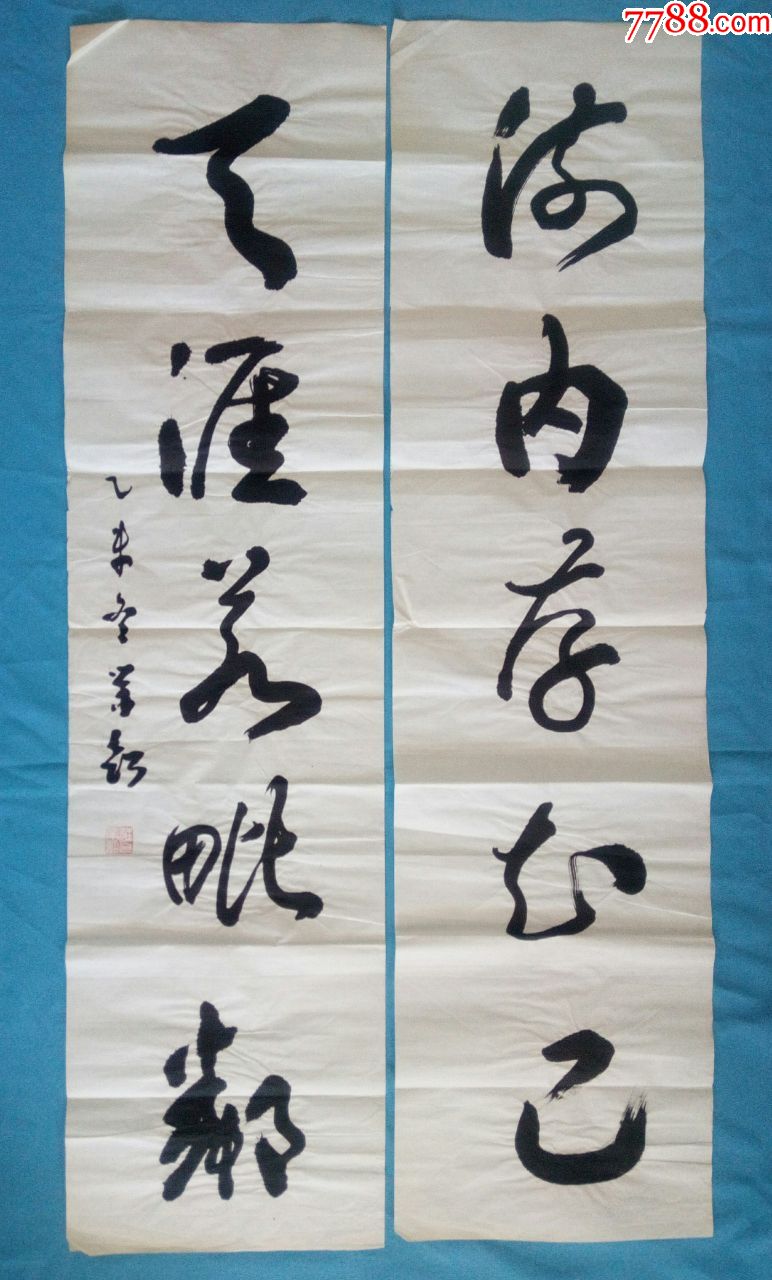 7788.com
海内存知己
天涯若毗鄰
乙未冬